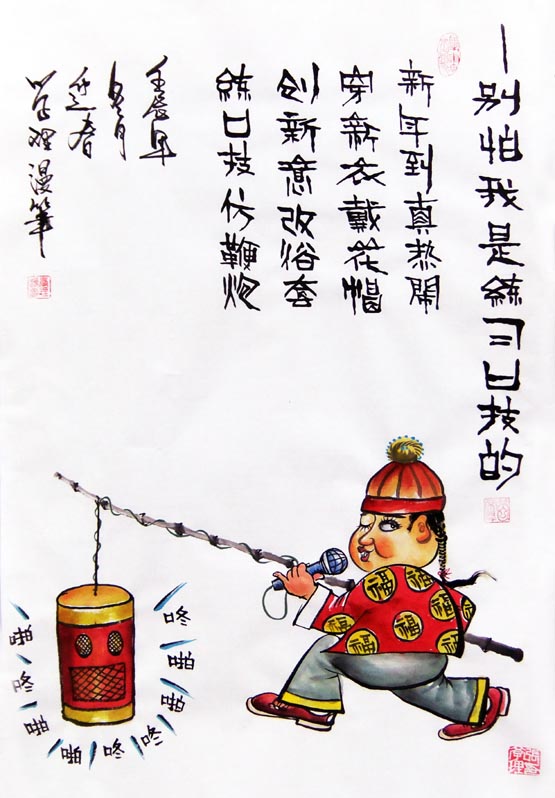 —别怕我是練习口技的
新年到真热鬧
穿新衣戴花帽
创新意改俗套
練口技仿鞭炮
壬辰年
迎春
漫筆
啪
咚
啪
啪
咚
咚
啪
啪
咚